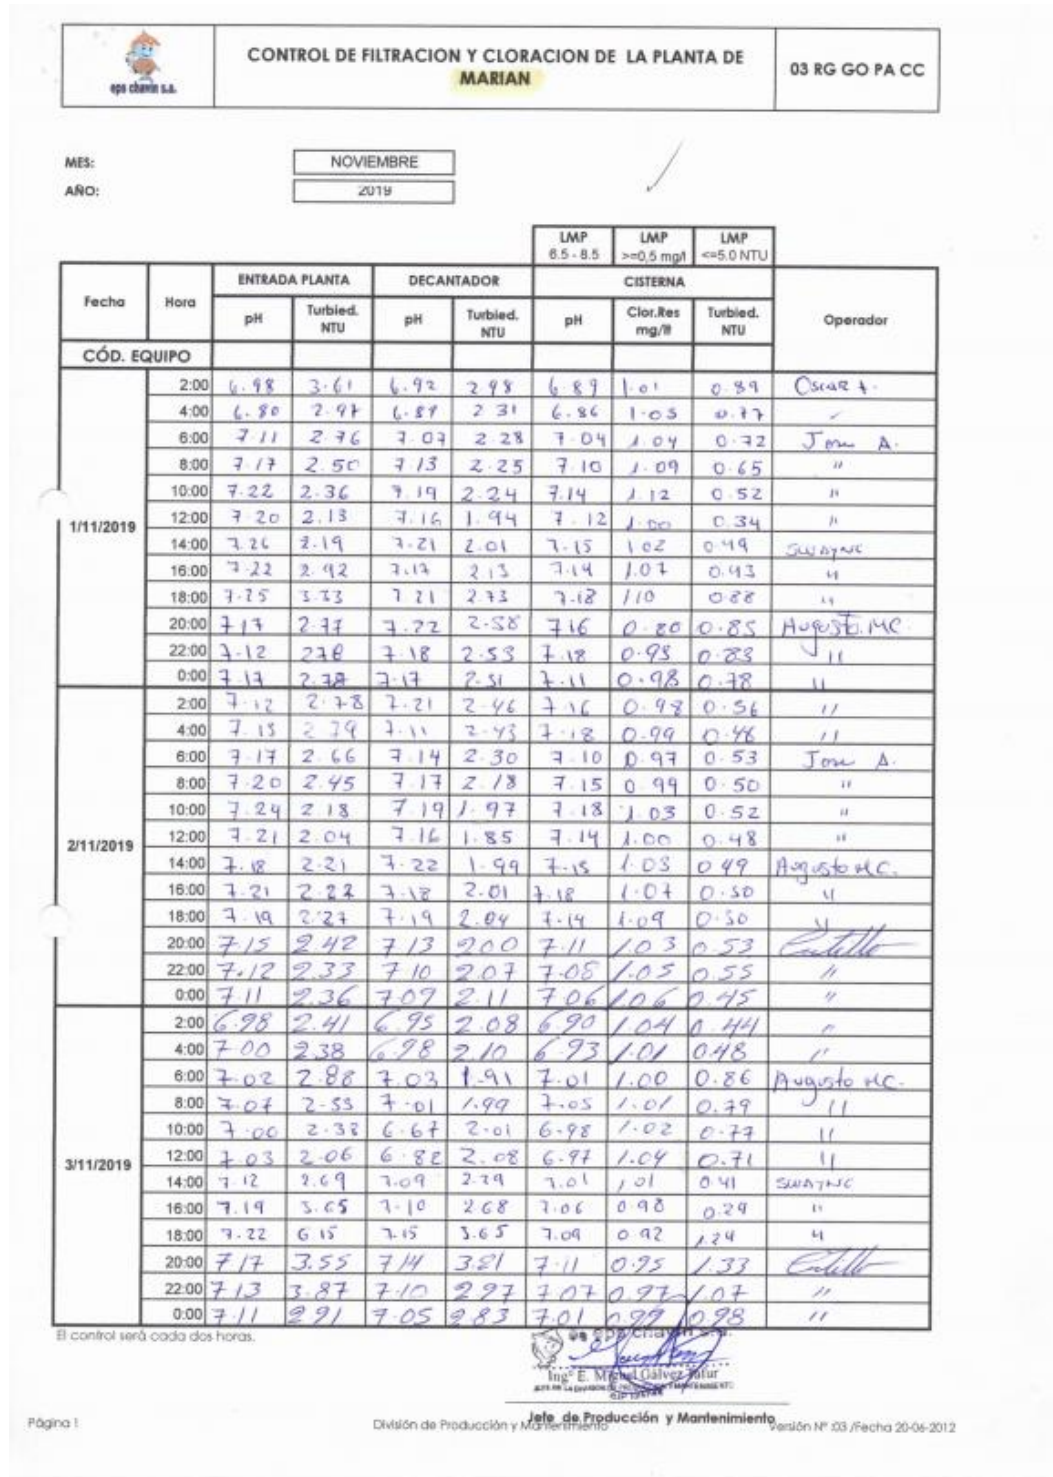 eps chavin s.a.
CONTROL DE FILTRACION Y CLORACION DE LA PLANTA DE
MARIAN
03 RG GO PA CC
MES: NOVIEMBRE
AÑO: 2019
LMP LMP LMP
6.5 - 8.5 >=0,5 mg/l <=5.0 NTU
Fecha Hora ENTRADA PLANTA DECANTADOR CISTERNA Operador
pH Turbied. NTU pH Turbied. NTU pH Clor.Res mg/lt Turbied. NTU
CÓD. EQUIPO
1/11/2019
2:00 6.98 3.61 6.92 2.98 6.89 1.01 0.89 Oscar A.
4:00 6.80 2.97 6.87 2 31 6.86 1.05 0.77
6:00 7.11 2.76 7.07 2.28 7.04 1.04 0.72 Jose A.
8:00 7.17 2.50 7.13 2.25 7.10 1.09 0.65 "
10:00 7.22 2.36 7.19 2.24 7.14 1.12 0.52 "
12:00 7.20 2.13 7.16 1.94 7.12 1.00 0.34 "
14:00 7.26 2.19 7.21 2.01 7.15 1 02 0.49 SWAYNE
16:00 7.22 2.92 7.17 2.13 7.14 1.07 0.43 "
18:00 7.25 3.33 7 21 2.73 7.18 1 10 0.88 "
20:00 7 17 2.77 7.22 2.58 7 16 0.80 0.85 Augusto.MC.
22:00 7.12 7.18 2.53 7.18 0.93 0.83 "
0:00 7.17 2.78 7.17 2.51 7.11 0.98 0.78 "
2/11/2019
2:00 7.12 2.78 7.21 2.46 7.16 0.98 0.56 "
4:00 7.13 2 79 7.11 2.43 7.18 0.99 0.48 "
6:00 7.17 2.66 7.14 2.30 7.10 0.97 0.53 Jose A.
8:00 7.20 2.45 7.17 2.18 7.15 0.99 0.50 "
10:00 7.24 2 18 7.19 1.97 7.18 1.03 0.52 "
12:00 7.21 2.04 7.16 1.85 7.14 1.00 0.48 "
14:00 7.18 2.21 7.22 1.99 7.15 1.03 0 49 Augusto MC.
16:00 7.21 2.22 7.18 2.01 7.18 1.07 0.50 "
18:00 7.19 2.27 7.19 2.04 7.14 1.09 0.50 "
20:00 7.15 2.42 7 13 2.00 7.11 1.03 0.53
22:00 7.12 2.33 7 10 2.07 7.08 1.05 0.55 "
0:00 7.11 2.36 7.09 2.11 7 06 1.06 0.45 "
3/11/2019
2:00 6.98 2.41 6.95 2.08 6.90 1.04 0.44 "
4:00 7.00 2.38 6.98 2.10 6.93 1.01 0.48 "
6:00 7.02 2.88 7.03 1.91 7.01 1.00 0.86 Augusto MC.
8:00 7.07 2.53 7.01 1.99 7.05 1.01 0.79 "
10:00 7.00 2.38 6.67 2.01 6.98 1.02 0.77 "
12:00 7.03 2.06 6.82 2.08 6.97 1.04 0.71 "
14:00 7.12 2.69 7.09 2.29 7.01 1.01 0.41 SWAYNE
16:00 7.19 3.65 7.10 2.68 7.06 0.98 0.29 "
18:00 7.22 6.15 7.15 3.65 7.09 0.92 1.24 "
20:00 7.17 3.55 7.14 3.21 7.11 0.95 1.33
22:00 7 13 3.87 7.10 2.97 7.07 0.97 1.07 "
0:00 7.11 2.91 7.05 2.83 7.01 0.99 0.98 "
El control será cada dos horas.
eps chavin s.a.
Ingº E. Miguel Gálvez Tafur
Jefe de Producción y Mantenimiento
Página 1 División de Producción y Mantenimiento Versión Nº :03 /Fecha 20-06-2012